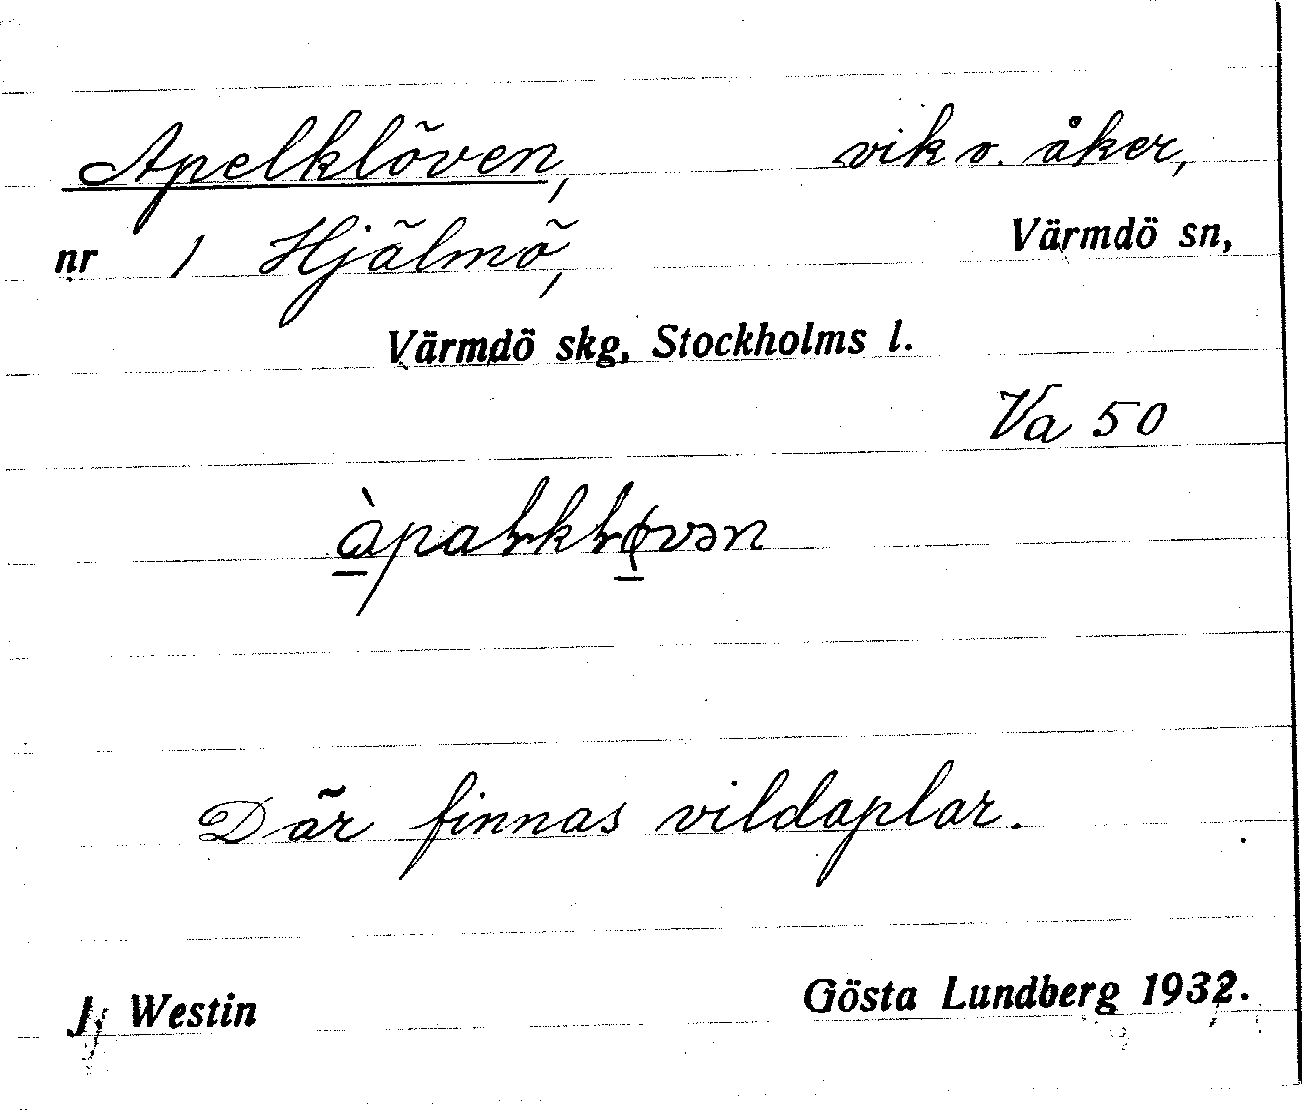 Apelklöven, vik o. åker,
nr 1 Hjälmö, Värmdö sn,
Värmdö skg, Stockholms l.
Va 50
Där finnas vildaplar.
J. Westin Gösta Lundberg 1932.